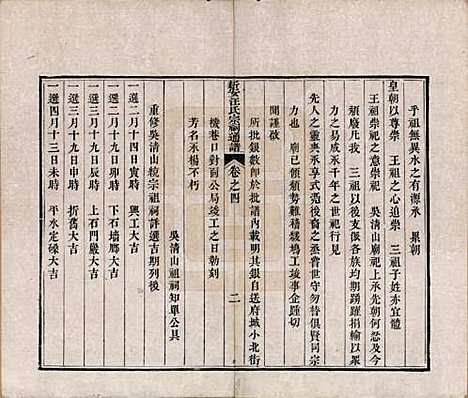 乎祖無異水之有源承 累朝
皇朝以尊崇 王祖之心追崇 三祖子姓亦宜體
王祖崇祀之意崇祀 吳清山廟祀上承先朝何忍及今
頹廢厥我 三祖以後支派各族均期踴躍捐輸以眾
力之易成承千年之世祀行見
先人之靈爽承享式馮後裔之丞嘗世守勿替俱賢同宗
力也 廟已傾頹勢難稽緩鳩工竣事企踵切
開謹啟
所批銀數即於批譜內載明其銀自送府城小北街
機巷口對面公局竣工之日勒刻
芳名承楊不朽
吳清山祖祠知單公具
新安汪氏宗祠通譜 卷之四 二
重修吳清山統宗祖祠評選吉期列後
一選二月十四日寅時 興工大吉
一選二月十九日卯時 下石墻腳大吉
一選三月十九日辰時 上石門嚴大吉
一選三月十九日申時 折舊大吉
一選四月十三日未時 平水定磉大吉